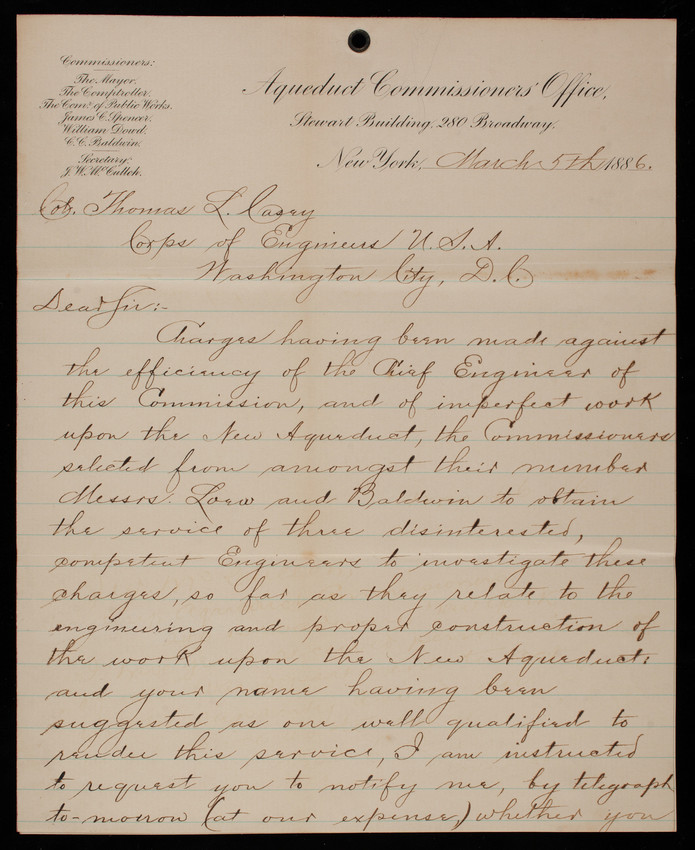 Commissioners:
The Mayor.
The Comptroller.
The Com'r. of Public Works.
James C. Spencer.
William Dowd.
C. C. Baldwin.
Secretary:
J. W. McCulloh.
Aqueduct Commissioners' Office,
Stewart Building, 280 Broadway,
New York, March 5th 1886.
Col. Thomas L. Casey
Corps of Engineers U.S.A.
Washington City, D.C.
Dear Sir:-
Charges having been made against
the efficiency of the Chief Engineer of
this Commission, and of imperfect work
upon the New Aqueduct, the Commissioners
selected from amongst their number
Messrs. Loew and Baldwin to obtain
the service of three disinterested,
competent Engineers to investigate these
charges, so far as they relate to the
engineering and proper construction of
the work upon the New Aqueduct:
and your name having been
suggested as one well qualified to
render this service, I am instructed
to request you to notify me, by telegraph
to-morrow (at our expense,) whether you